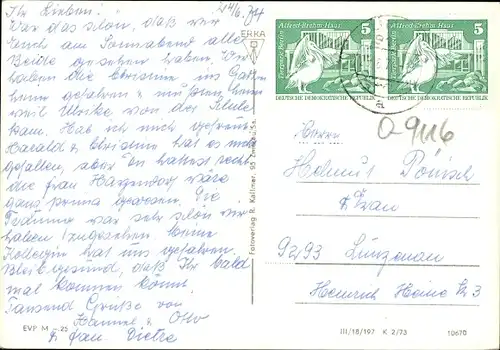 Ihr Lieben! 24/6.74
War das schön, daß wir
Euch am Sonnabend alle
Beide gesehen haben. Wir
haben die Christine ins Garten
heim gefahren &
weil Ulrike von der Schule
kam. Hab ich mich gefreut
Harald & Christine hat es
gefallen, aber Du hattest recht
die Frau Hagendorf wäre
ganz prima gewesen. Die
Trauung war sehr schön wir
haben zugesehen. Eine
Kollegin hat uns gefahren.
Bleibt gesund, daß Ihr bald
mal kommen könnt.
Tausend Grüße von
Hannel & Otto
& Fam. Dietze
EVP M -25
ERIKA
Fotoverlag R. Kallmer, 50
Alfred-Brehm-Haus
Tierpark Berlin
5
DEUTSCHE DEMOKRATISCHE REPUBLIK
Alfred-Brehm-Haus
Tierpark Berlin
5
DEUTSCHE DEMOKRATISCHE REPUBLIK
O 9116
Herrn
Helmut
& Frau
9293 Lunzenau
Heinrich Heine Str 3
III/18/197 K 2/73 10670